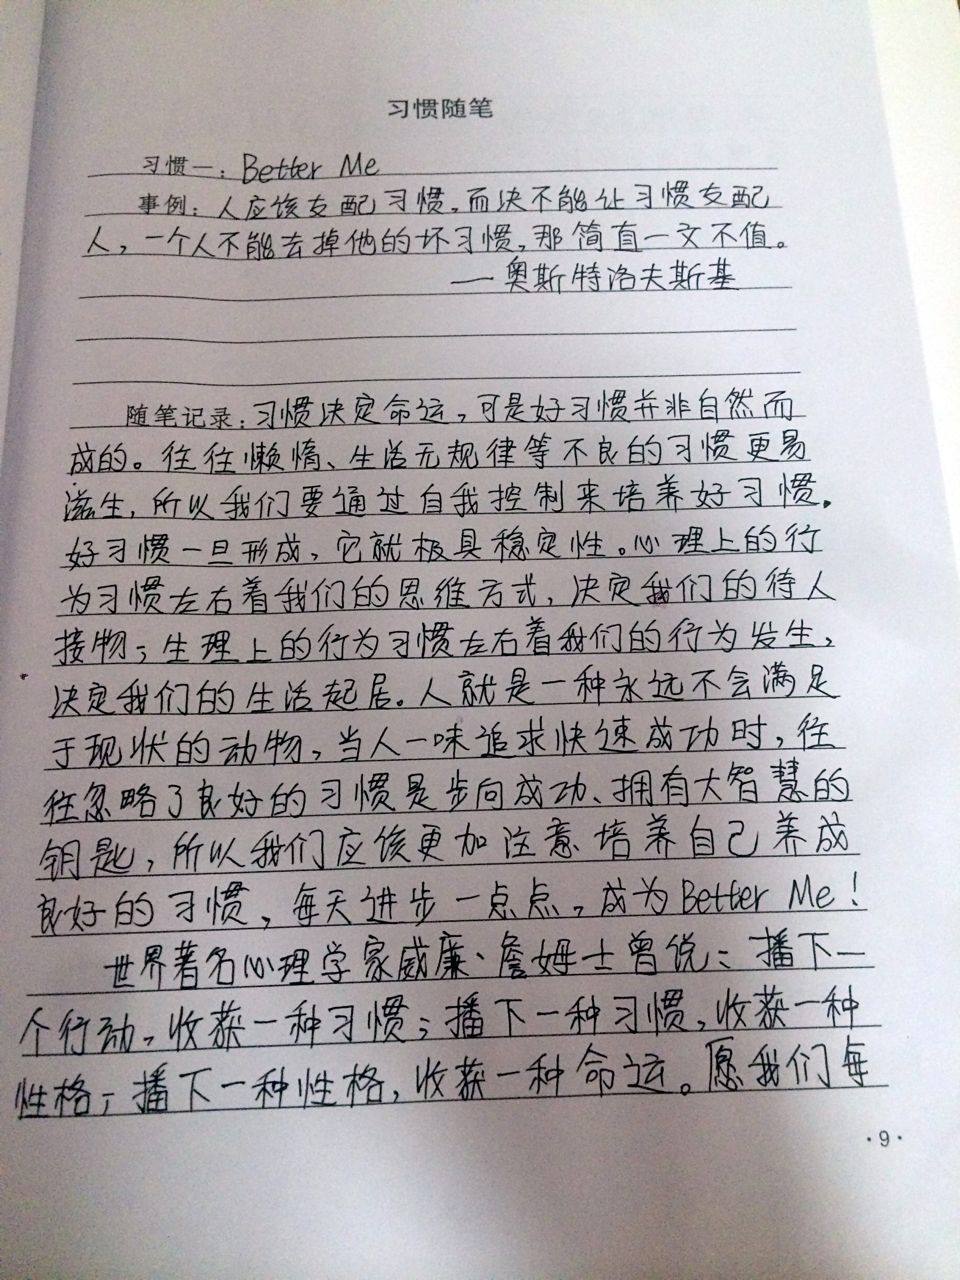 习惯随笔
习惯一：Better Me
事例：人应该支配习惯，而决不能让习惯支配
人，一个人不能去掉他的坏习惯，那简直一文不值。
——奥斯特洛夫斯基
随笔记录：习惯决定命运，可是好习惯并非自然而
成的。往往懒惰、生活无规律等不良的习惯更易
滋生，所以我们要通过自我控制来培养好习惯。
好习惯一旦形成，它就极具稳定性。心理上的行
为习惯左右着我们的思维方式，决定我们的待人
接物；生理上的行为习惯左右着我们的行为发生，
决定我们的生活起居。人就是一种永远不会满足
于现状的动物，当人一味追求快速成功时，往
往忽略了良好的习惯是步向成功、拥有大智慧的
钥匙，所以我们应该更加注意培养自己养成
良好的习惯，每天进步一点点，成为Better Me！
世界著名心理学家威廉·詹姆士曾说：播下一
个行动，收获一种习惯；播下一种习惯，收获一种
性格；播下一种性格，收获一种命运。愿我们每
·9·